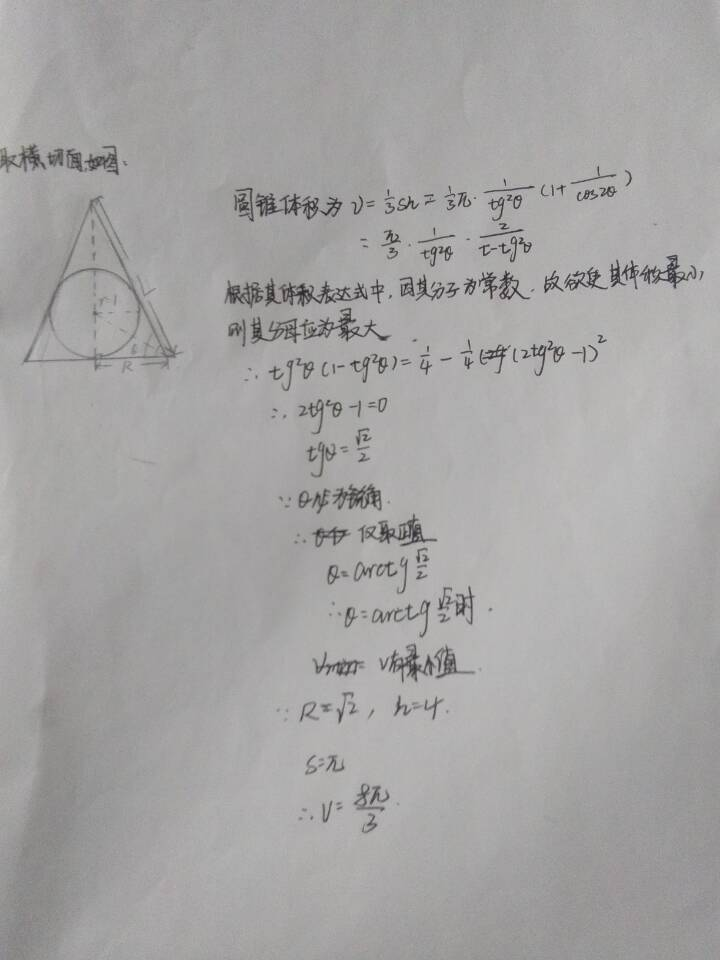 取横切面如图:
圆锥体积为 V=1/3Sh=1/3π·1/tg²θ(1+1/cos2θ)
=π/3·1/tg²θ·2/1-tg²θ
根据其体积表达式中,因其分子为常数,故欲使其体积最小,
则其分母应为最大
∴tg²θ(1-tg²θ)=1/4-1/4(2tg²θ-1)²
∴2tg²θ-1=0
tgθ=√2/2
∵θ为锐角.
∴仅取正值
θ=arctg√2/2
∴θ=arctg√2/2时.
V有最小值.
∵R=√2, h=4.
S=π
∴V=8π/3.
r=1
L
θ
R